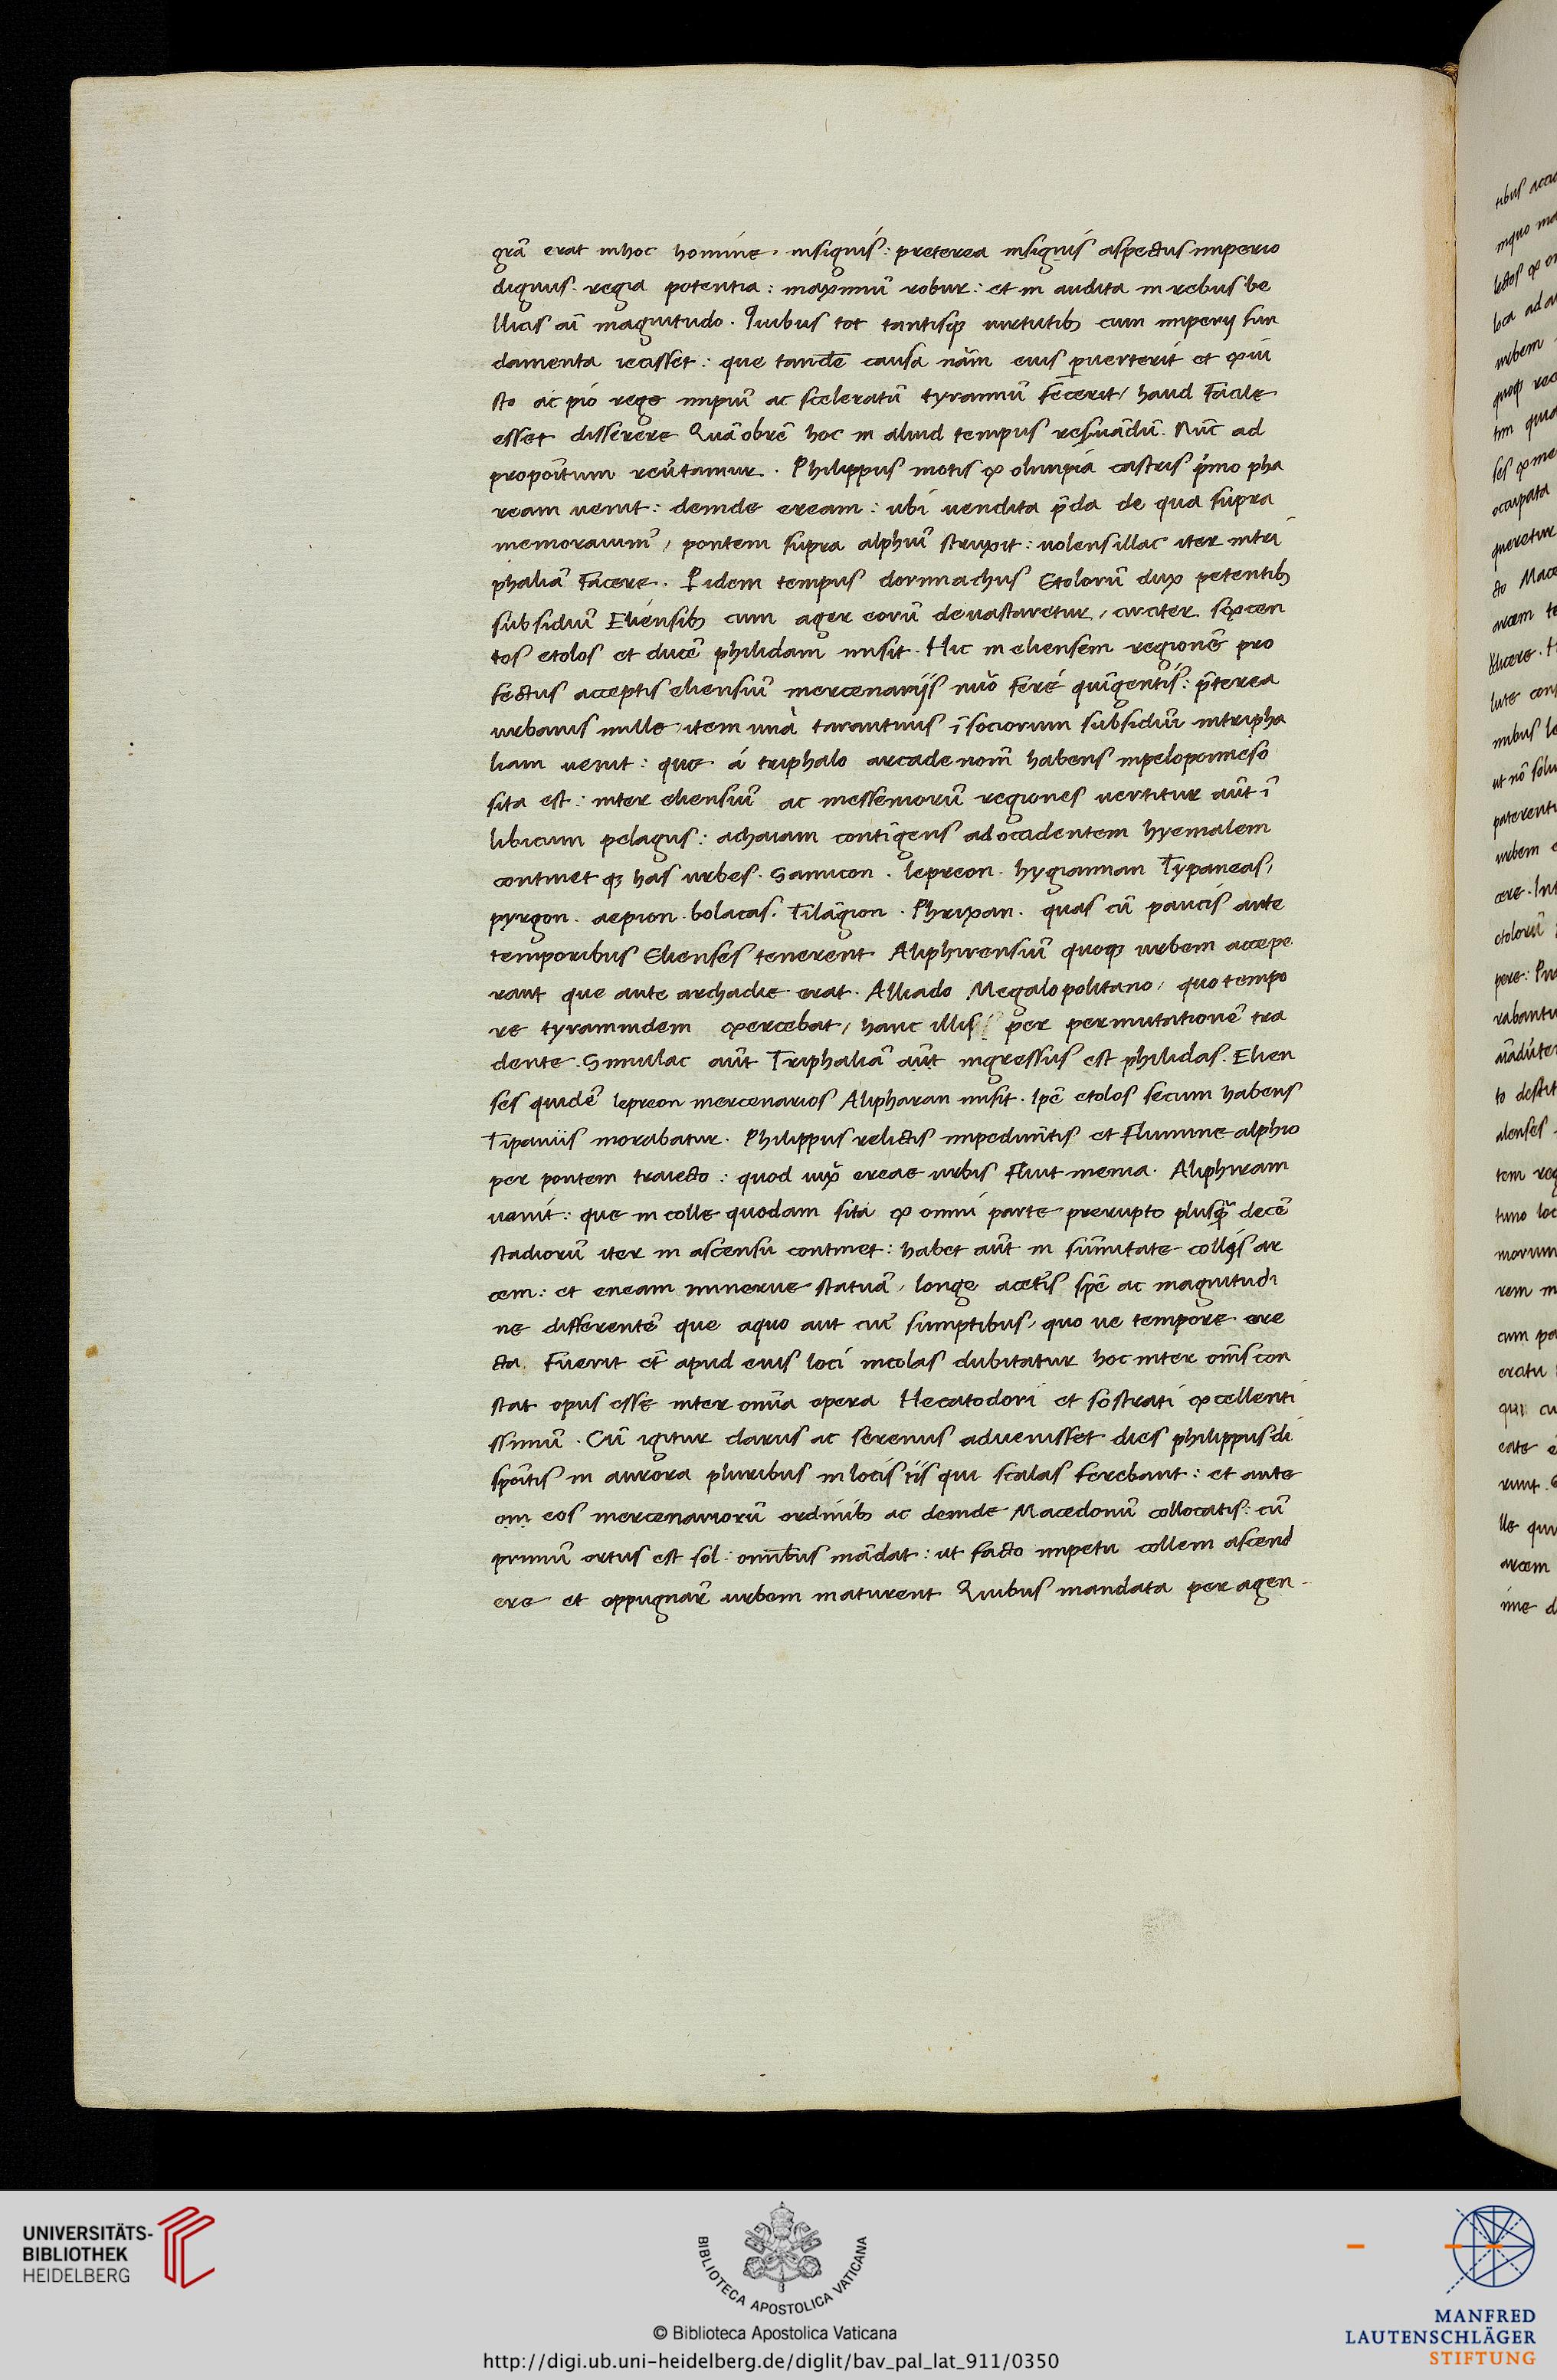 grã erat inhoc homine. insignis: preterea insignis aspectus imperio
dignus. regia potentia: maximũ robur: et in audita in rebus be
llicis aĩ magnitudo. Quibus tot tantisqꝫ uirtutibꝫ cum imperij fun
damenta iecisset: que tandẽ causa nãm eius ꝑuerterit et exiu
sto ac pio rege impiũ ac sceleratũ tyrannũ fecerit/ haud facile
esset disserere Quãobrẽ hoc in aliud tempus resẽruãdũ. Nũc ad
propoĩtum reũtamur. Philippus motis ex olimpia castris p̃mo pha
ream uenit: deinde eream: ubi uendita p̃da de qua supra
memorauimꝰ, pontem supra alphiũ struxit: uolens illac iter intri
phaliã facere. Per idem tempus dorimachus Etolorũ dux petentibꝫ
subsidiũ Eliensibꝫ cum ager eorũ deuastaretur, circiter sexcen
tos etolos et ducẽ philidam misit. Hic in eliensem regionẽ pro
fectus acceptis eliensiũ mercenarijs nũo fere quĩgentis: p̃terea
urbanis mille item una tarantinis ĩ sociorum subsidiũ intripha
liam uenit: que á triphalo arcade nom̃ habens inpeloponneso
sita est: inter eliensiũ ac messeniorũ regiones uertitur aũt ĩ
libicum pelagus: achaiam contĩgens adoccidentem hyemalem
continet qꝫ has urbes. Samicon. lepreon. hygiannan Typaneas,
pyrgon. aepion. bolacas. Tilãgion. Phrixan. quas cũ paucis ante
temporibus Elienses tenerent Aliphirensiũ quoqꝫ urbem accepe
rant que ante archadie erat. Alliado Megalopolitano, quo tempo
re tyrannidem exercebat, hanc illis per permutationẽ tra
dente. Simulac aũt Triphaliã aũt ingressus est philidas. Elien
ses quidẽ lepreon mercenarios Alipharan misit. Ipẽ etolos secum habens
Tipaniis morabatur. Philippus relictis impedimẽtis et flumine alphio
per pontem traiecto: quod iuxã ereae urbis fluit menia. Aliphiram
uenit: que in colle quodam sita ex omni parte prerupto plusqꝫ̃ decẽ
stadiorũ iter in ascensu continet: habet aũt in sũmitate collis ar
cem: et eneam minerue statuã, longe acet̃is spẽ ac magnitudi
ne differentẽ que aquo aut cuiꝰ sumptibus, quo ue tempore ere
cta. fuerit et̃ apud eius loci incolas dubitatur hoc inter om̃s con
stat opus esse inter om̃ia opera Hecatodori et sostrati excellenti
ssimũ. Cũ igitur clarus ac serenus aduenisset dies philippus di
spoĩtis in aurora pluribus in locis iis qui scalas ferebant: et ante
om eos mercenariorũ ordinibꝫ ac deinde Macedonũ collocatis: cũ
primũ ortus est sol: omĩbus mãdat: ut facto impetu collem ascend
ere et oppugnar̃ urbem maturent Quibus mandata per agen-
UNIVERSITÄTS-
BIBLIOTHEK
HEIDELBERG
BIBLIOTECA APOSTOLICA VATICANA
© Biblioteca Apostolica Vaticana
http://digi.ub.uni-heidelberg.de/diglit/bav_pal_lat_911/0350
MANFRED
LAUTENSCHLÄGER
STIFTUNG